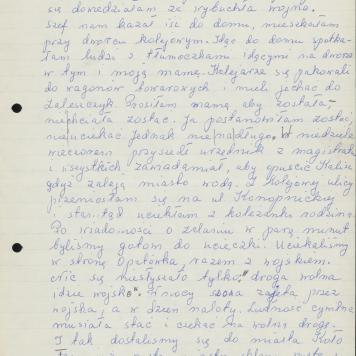 się dowiedziałam że wybuchła wojna.
Szef nam kazał iść do domu, mieszkałam
przy dworcu kolejowym. Idąc do domu spotka-
łam ludzi z tłumoczkami idącymi na dworzec
w tym i moją mamę. Kolejarze się pakowali
do wagonów towarowych i mieli jechać do
Zaleszczyk. Prosiłam mamę aby została
niechciała zostać. Ja postanowiłam zostać,
nieuciekać jednak nie na długo. W niedziele
wieczorem przyszedł urzędnik z magistratu
i wszystkich zawiadamiał, aby opuścić Kalisz
gdyż zaleją miasto wodą. Z Kolejowej ulicy
przeniosłam się na ul Konopnickiej
i stamtąd uciekłam z koleżanki rodziną.
Po wiadomości o zalaniu w parę minut
byliśmy gotowi do ucieczki. Uciekaliśmy
w stronę Opatówka, razem z wojskiem.
Nic się niesłyszało tylko "droga wolna
idzie wojsko". W nocy szosa zajęta przez
wojska, a w dzień naloty. Ludność cywilna
musiała stać i czekać na wolną drogę.
I tak dostaliśmy się do miasta Koło